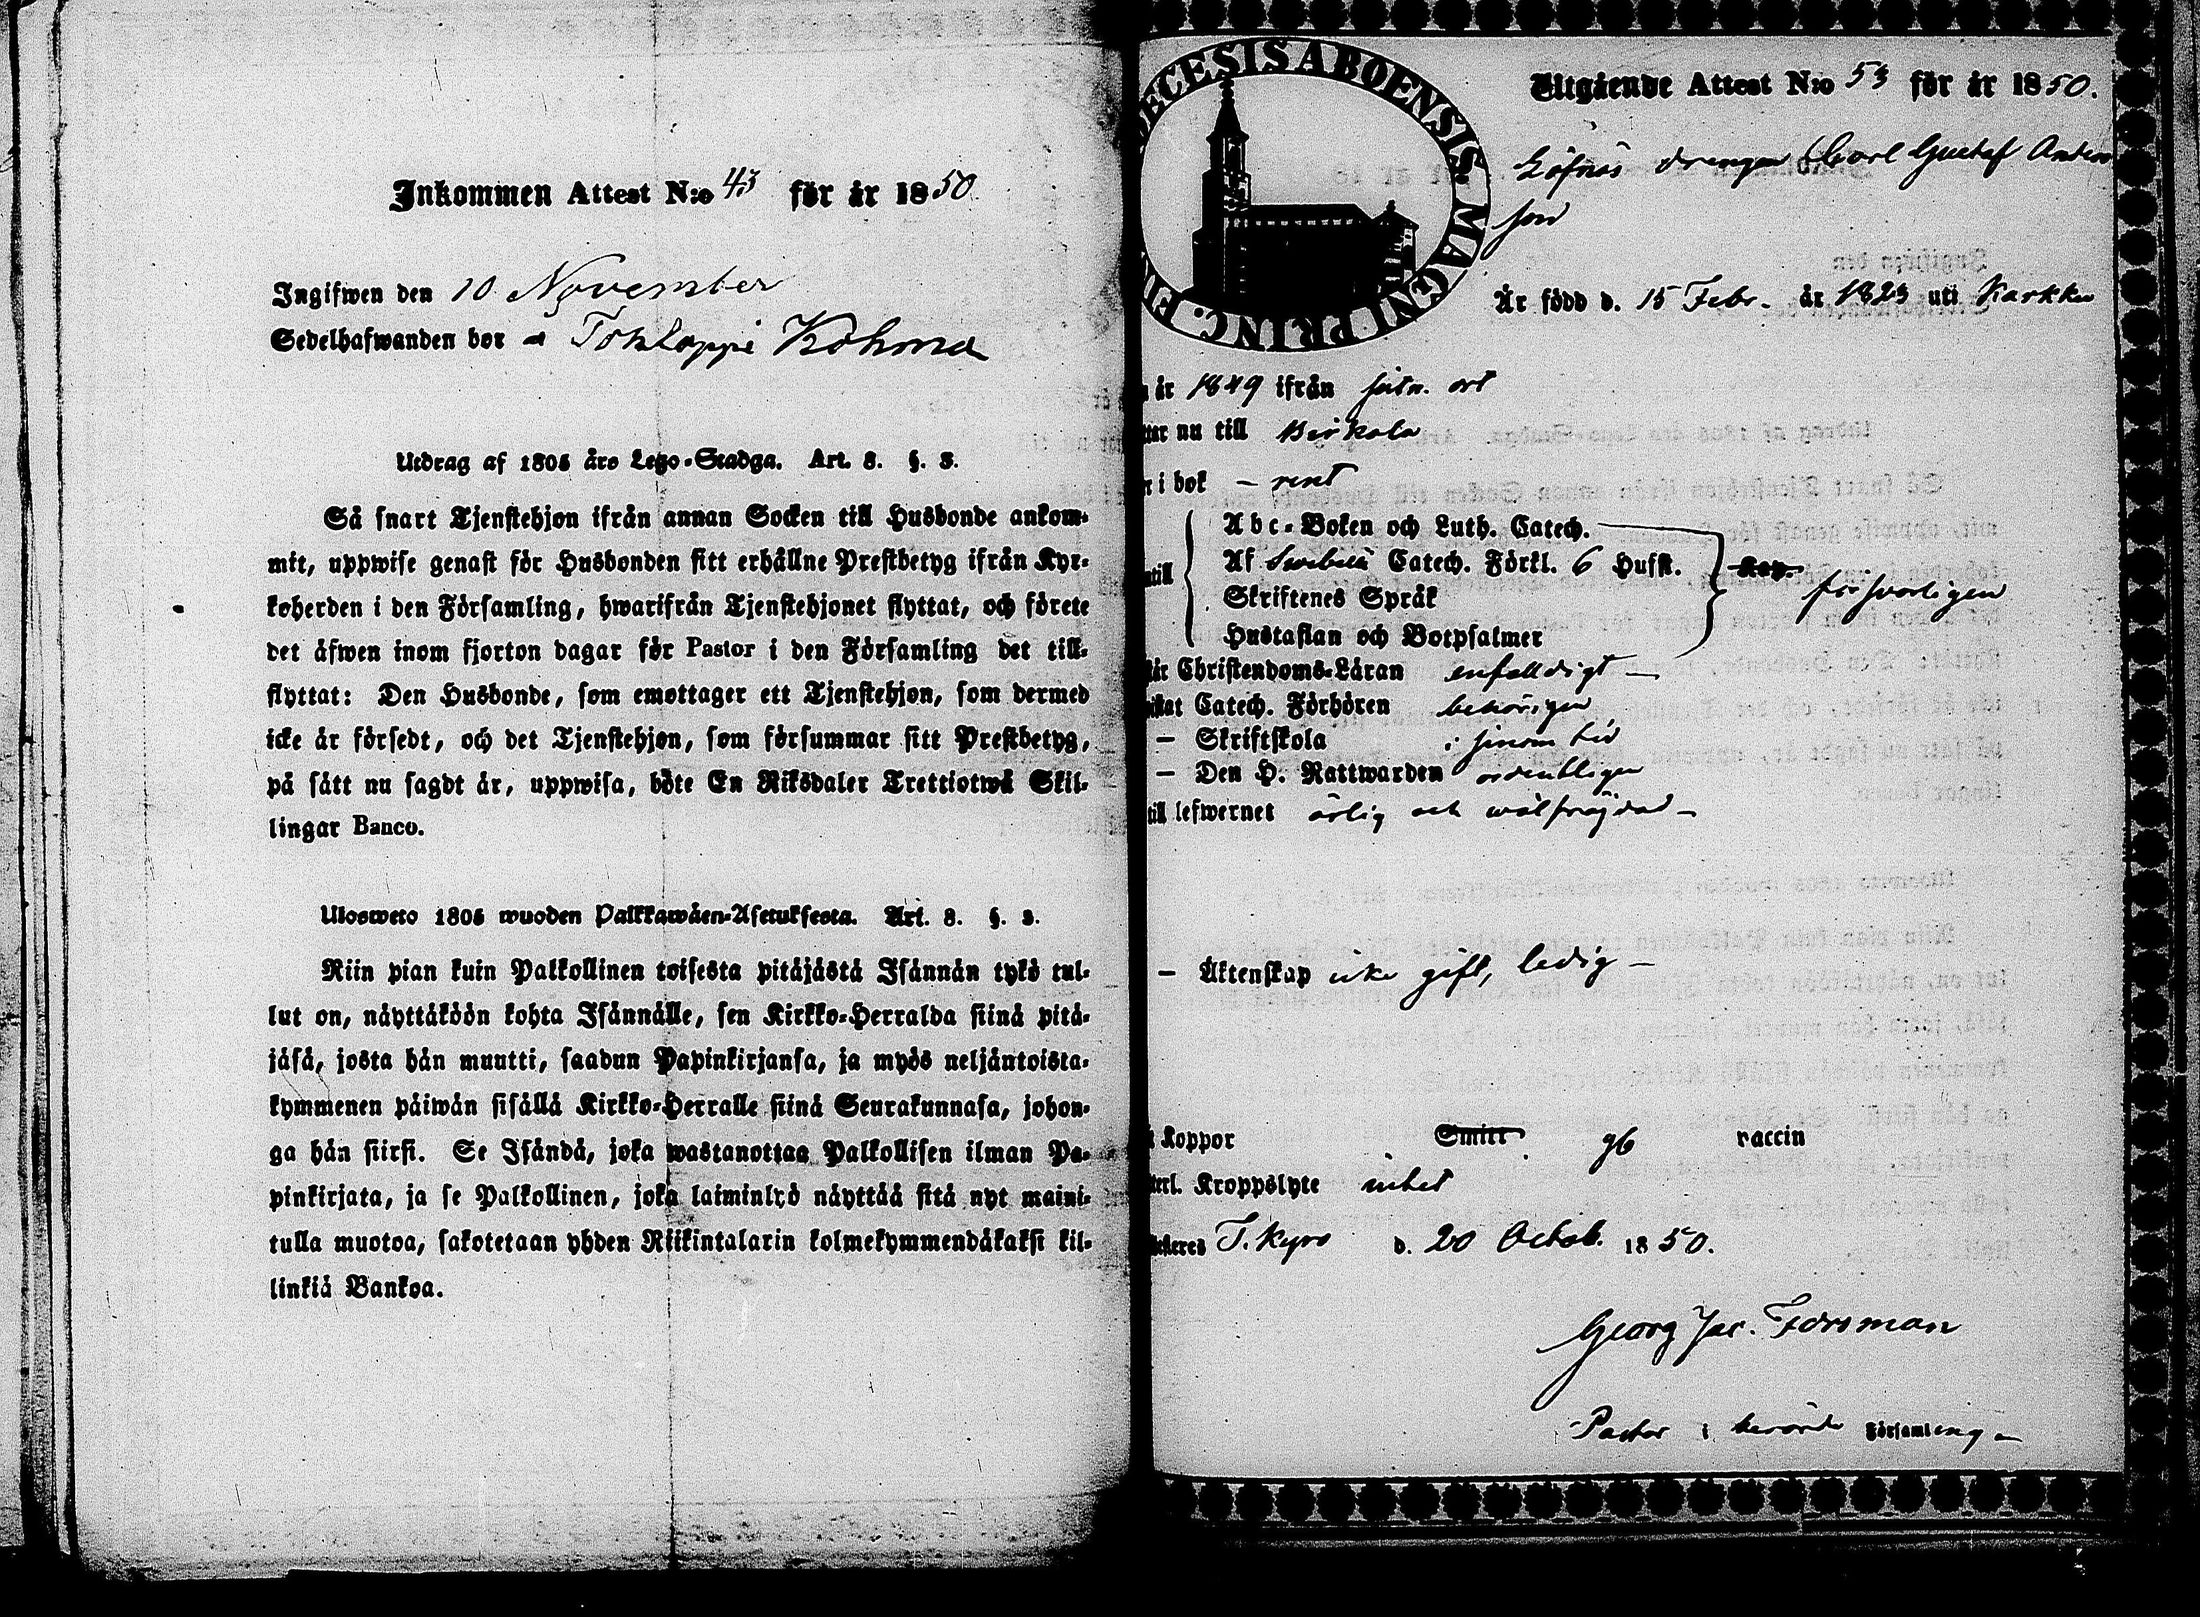 Inkommen Attest N:o 43 för år 1850.
Ingifwen den 10 November
Sedelhafwanden bor
Utdrag af 1805 års Lego-Stadga. Art. 8. §. 3.
Så snart Tjenstehjon ifrån annan Socken till Husbonde ankom-
mit, uppwise genast för Husbonden sitt erhållne Prestbetyg ifrån Kyr-
koherden i den Församling, hwarifrån Tjenstehjonet flyttat, och förete
det åfwen inom fjorton dagar för Pastor i den Församling det till-
flyttat: Den Husbonde, som emottager ett Tjenstehjon, som dermed
icke år försedt, och det Tjenstehjon, som försummar sitt Prestbetyg,
på sått nu sagdt år, uppwisa, böte En Riksdaler Trettiotwå Skil-
lingar Banco.
Ulosweto 1805 wuoden Palkkawåen-Asetuksesta. Art. 8. §. 3.
Niin pian kuin Palkollinen toisesta pitåjåstå Isånnån tykö tul-
lut on, nåyttåköön kohta Isånnålle, sen Kirkko-Herralda siinå pitå-
jåså, josta hån muutti, saadun Papinkirjansa, ja myös neljåntoista-
kymmenen påiwån sisållå Kirkko-Herralle siinå Seurakunnasa, johon-
ga hån siirsi. Se Isåndå, joka wastanottaa Palkollisen ilman Pa-
pinkirjata, ja se Palkollinen, joka laiminlyö nåyttåå sitå nyt maini-
tulla muotoa, sakotetaan yhden Riikintalarin kolmekymmendåkaksi kil-
linkiå Bankoa.
DECESIS ABOENSIS. MAGNI PRINC. FIN
Utgående Attest N:o 53 för år 1850.
drengen Carl Gustaf Anders
son
År född d. 15 Febr. år 1823 uti Karkku
år 1849 ifrån sistn. ort
nu till Birkala
i bok – rent
Abc-Boken och Luth. Catech.
Af Swebilii Catech. Förkl. 6 Hufst.
Skriftenes Språk
försvarligen
Hustaflan och Botpsalmer
Christendoms-Låran enfalldigt –
Catech. Förhören behörigen
– Skriftskola i sinom tid
– Den H. Nattwarden ordentligen
till lefwernet ärlig och wälfräjdad –
– Åktenskap icke gift, ledig –
Koppor Smitt. gb vaccin
Kroppslyte intet
T. Kyro d. 20 Octob. 1850.
Georg Jac. Forsman
Pastor i berörde Församlingen